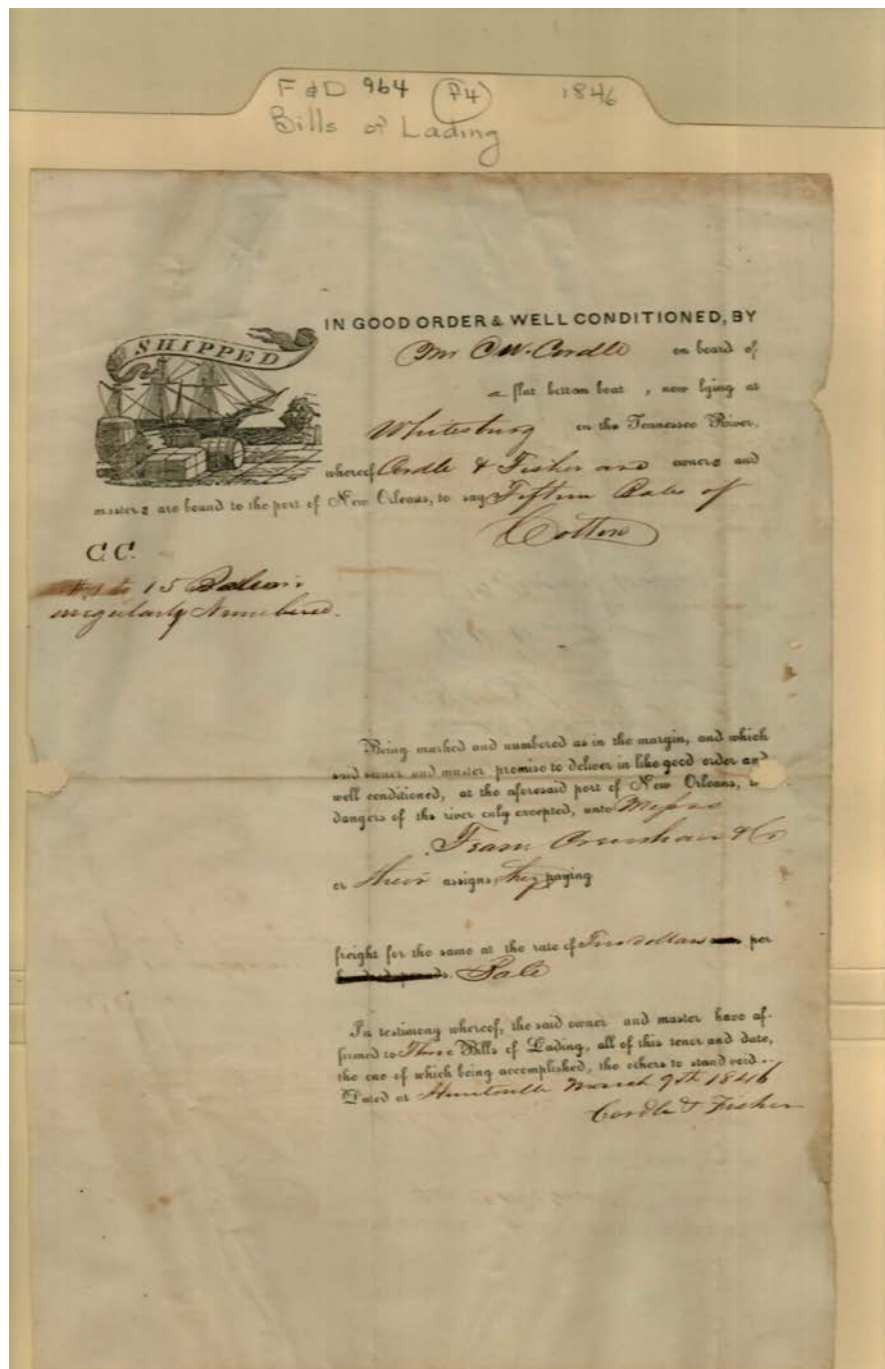 F & D 964 P4 1846
Bills of Lading
SHIPPED
IN GOOD ORDER & WELL CONDITIONED, BY
Mr C W. Cordle on board of
a flat bottom boat, now lying at
Whitesburg on the Tennessee River,
whereof Cordle & Fisher are owners and
masters are bound to the port of New Orleans, to say Fifteen Bales of
Cotton
C C.
1 to 15 Bales
irregularly Numbered.
Being marked and numbered as in the margin, and which
said owner and master promise to deliver in like good order and
well conditioned, at the aforesaid port of New Orleans,
dangers of the river only excepted, unto Messrs
Crenshaw & Co
or their assigns, they paying
freight for the same at the rate of Two dollars per
Bale
In testimony whereof, the said owner and master have af-
firmed to Three Bills of Lading, all of this tenor and date,
the one of which being accomplished, the others to stand void.
Dated at Huntsville March 9th 1846
Cordle & Fisher